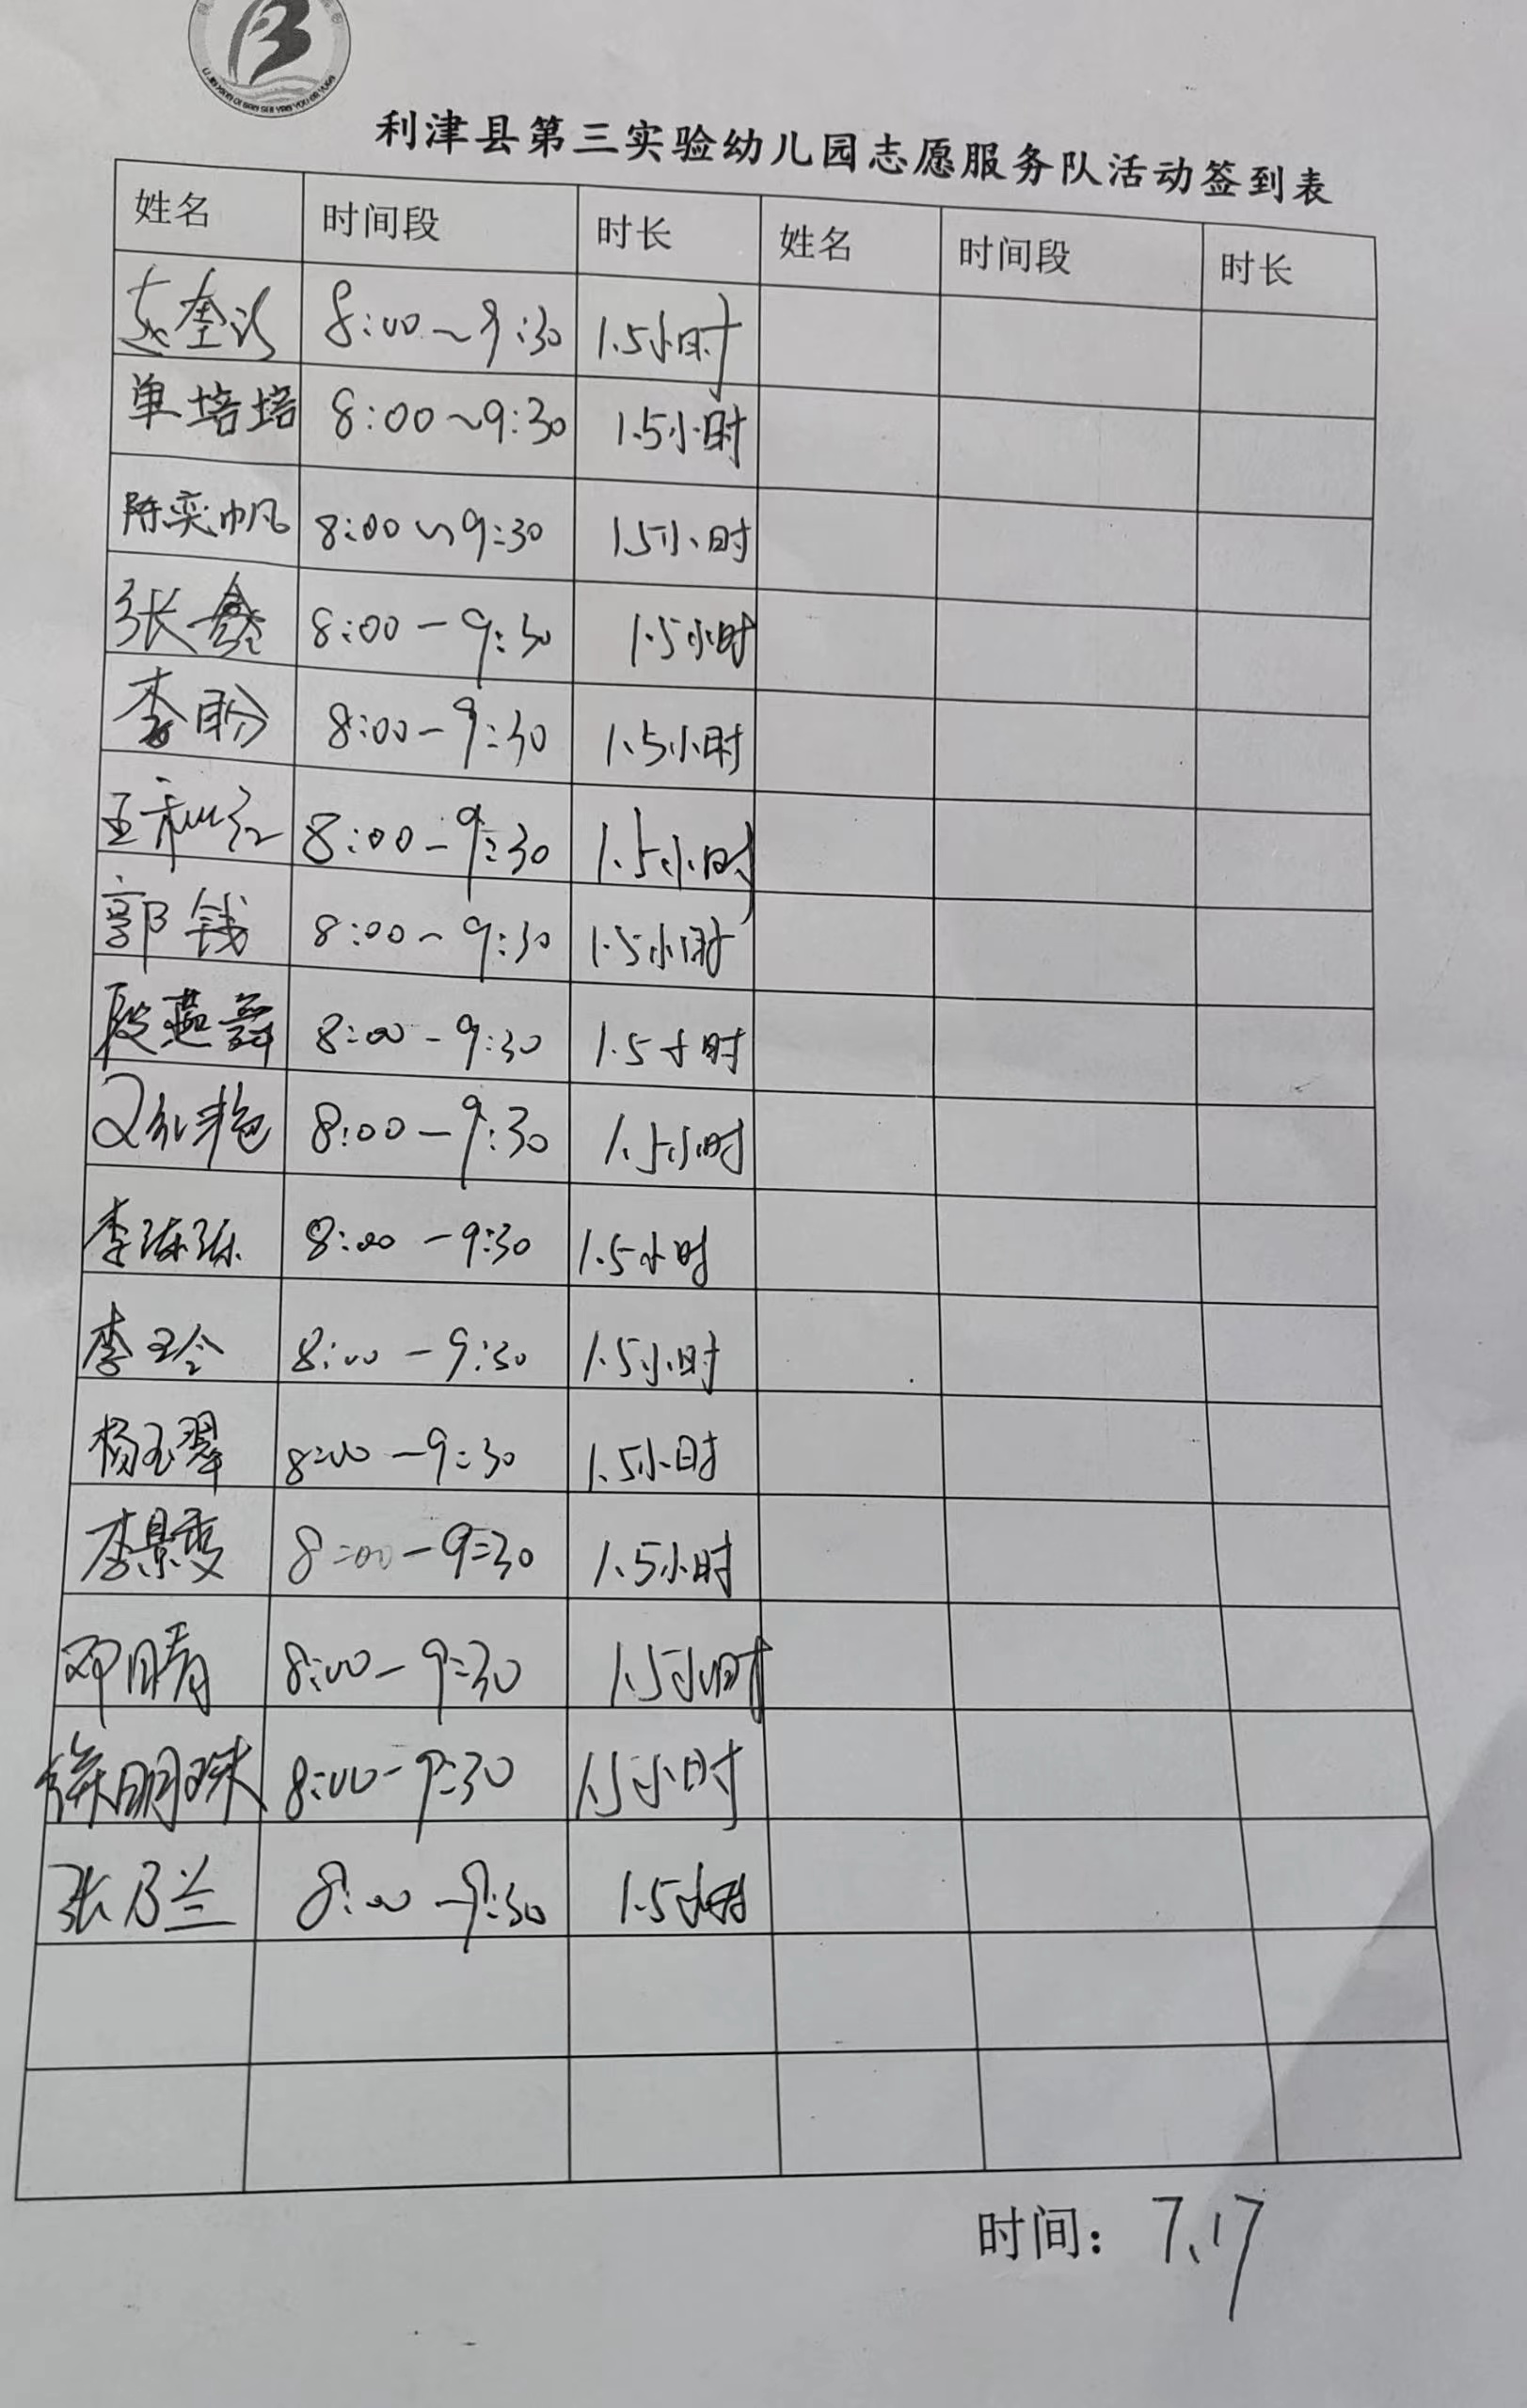 利津县第三实验幼儿园志愿服务队活动签到表
姓名 时间段 时长 姓名 时间段 时长
8:00~9:30 1.5小时
单培培 8:00~9:30 1.5小时
陈奕帆 8:00~9:30 1.5小时
张鑫 8:00-9:30 1.5小时
李盼 8:00-9:30 1.5小时
王 红 8:00-9:30 1.5小时
郭钱 8:00-9:30 1.5小时
殷燕舞 8:00-9:30 1.5小时
艳 8:00-9:30 1.5小时
李琳琳 8:00-9:30 1.5小时
李玲 8:00-9:30 1.5小时
杨玉翠 8:00-9:30 1.5小时
李景雯 8:00-9:30 1.5小时
邓晴 8:00-9:30 1.5小时
徐明珠 8:00-9:30 1.5小时
张乃兰 8:00-9:30 1.5小时
时间：7.17